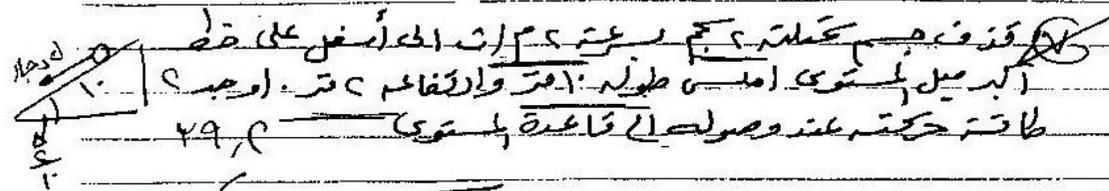 قذف جسم كتلته ٢ كجم بسرعة ٢ م/ث الى أسفل على خط
أكبر ميل لمستوى املس طوله ١٠ متر وارتفاعه ٢ متر . اوجد
طاقة حركته عند وصوله إلى قاعدة المستوى